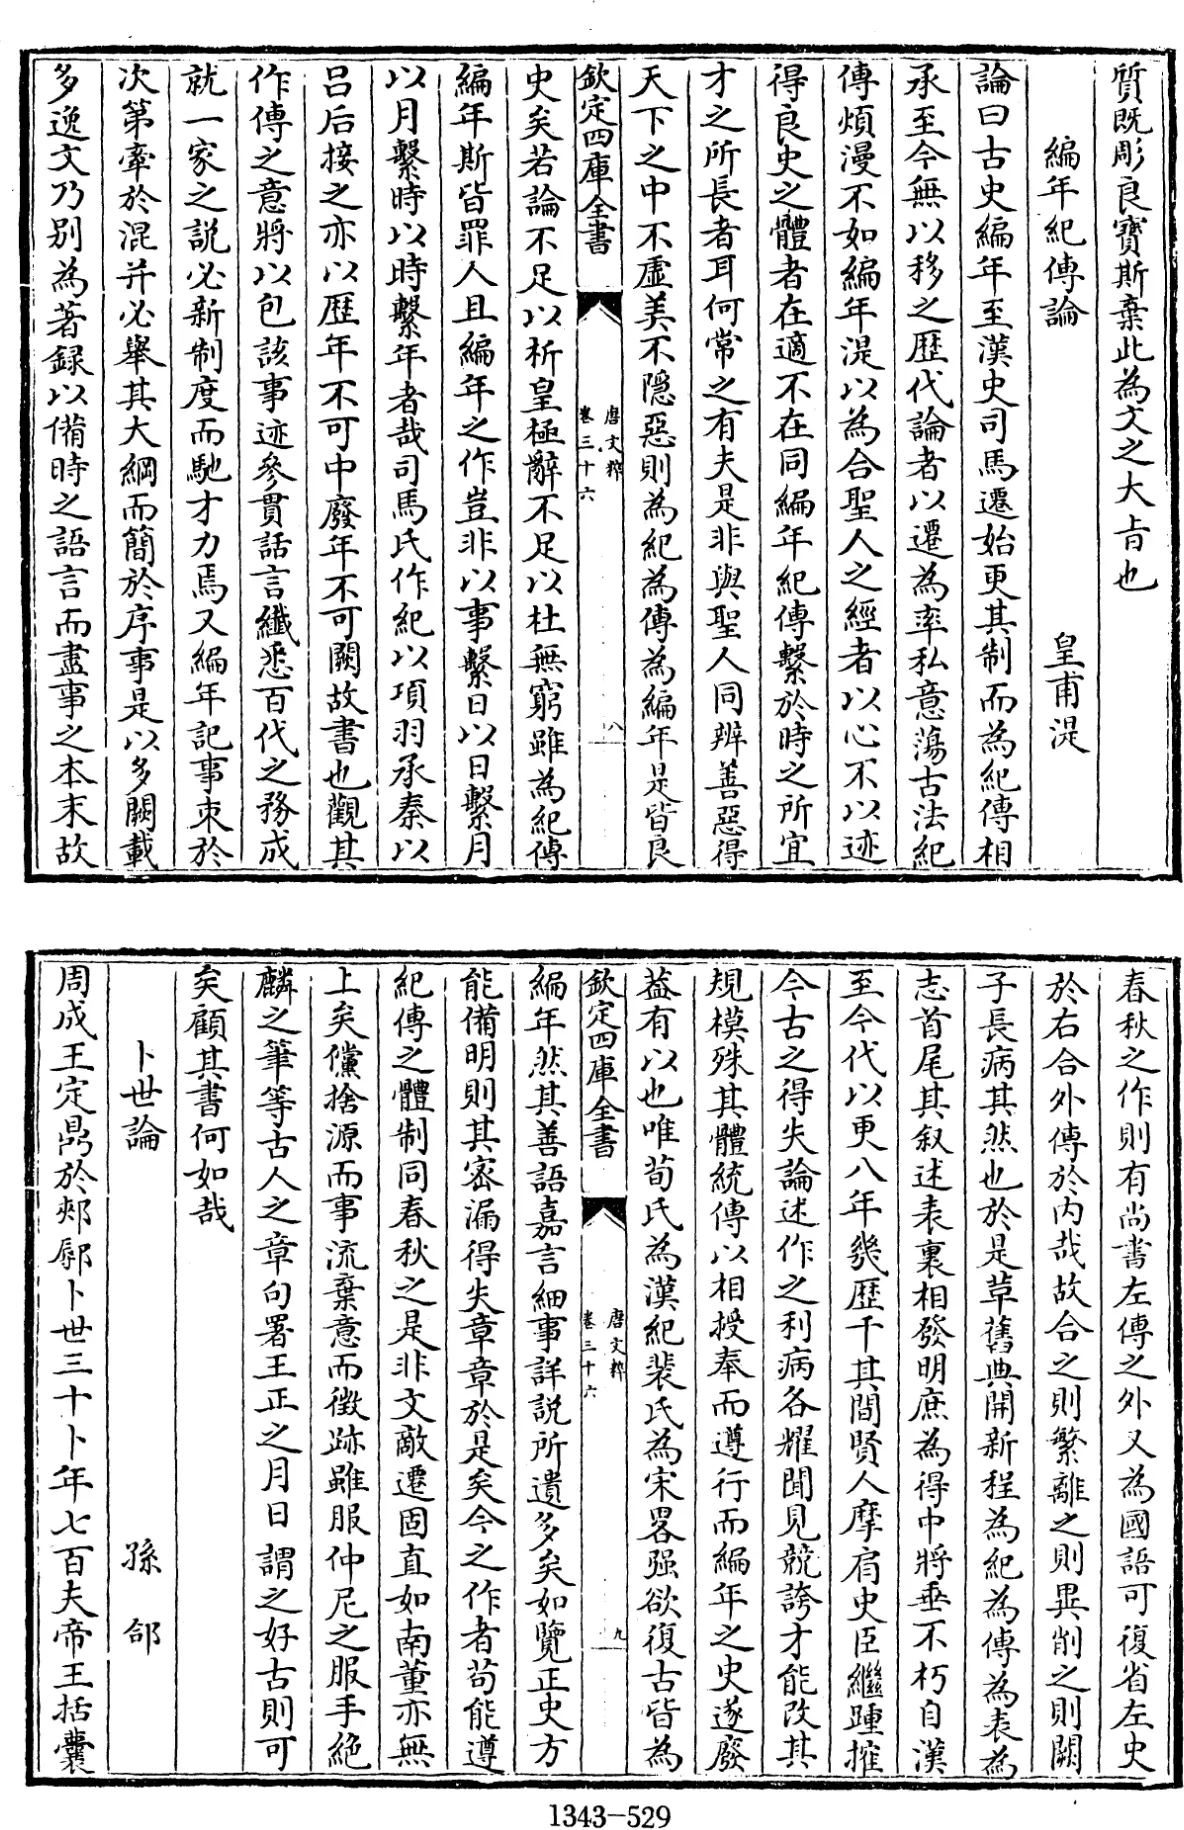 質既彫良寶斯棄此為文之大旨也
編年紀傳論 皇甫湜
論曰古史編年至漢史司馬遷始更其制而為紀傳相
承至今無以移之歷代論者以遷為率私意蕩古法紀
傳煩漫不如編年湜以為合聖人之經者以心不以迹
得良史之體者在適不在同編年紀傳繫於時之所宜
才之所長者耳何常之有夫是非與聖人同辨善惡得
天下之中不虛美不隱惡則為紀為傳為編年是皆良
欽定四庫全書 唐文粹 卷三十六 八
史矣若論不足以析皇極辭不足以杜無窮雖為紀傳
編年斯皆罪人且編年之作豈非以事繫日以日繫月
以月繫時以時繫年者哉司馬氏作紀以項羽承秦以
呂后接之亦以歷年不可中廢年不可闕故書也觀其
作傳之意將以包該事迹參貫話言纖悉百代之務成
就一家之説必新制度而馳才力焉又編年記事束於
次第牽於混并必舉其大綱而簡於序事是以多闕載
多逸文乃別為著録以備時之語言而盡事之本末故
春秋之作則有尚書左傳之外又為國語可復省左史
於右合外傳於内哉故合之則繁離之則異削之則闕
子長病其然也於是草舊典開新程為紀為傳為表為
志首尾其叙述表裏相發明庶為得中將垂不朽自漢
至今代以更八年幾歷千其間賢人摩肩史臣繼踵推
今古之得失論述作之利病各耀聞見競誇才能改其
規模殊其體統傳以相授奉而遵行而編年之史遂廢
葢有以也唯荀氏為漢紀裴氏為宋畧强欲復古皆為
欽定四庫全書 唐文粹 卷三十六 九
編年然其善語嘉言細事詳説所遺多矣如覽正史方
能備明則其密漏得失章章於是矣今之作者苟能遵
紀傳之體制同春秋之是非文敵遷固直如南董亦無
上矣儻捨源而事流棄意而徵跡雖服仲尼之服手絶
麟之筆等古人之章句署王正之月日謂之好古則可
矣顧其書何如哉
卜世論 孫郃
周成王定鼎於郟鄏卜世三十卜年七百夫帝王括囊
1343-529